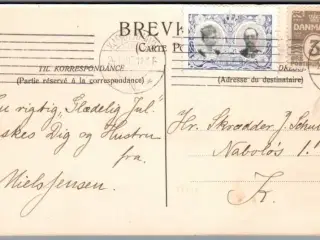 BREVK
(CARTE PO
DANMARK
3
TIL KORRESPONDANCE
(Partie réservé à la correspondance)
(Adresse du destinataire)
En rigtig "Glædelig Jul"
nskes Dig og Hustru
fra
Niels Jensen.
Hr. Skrædder J. Schu
Naboløs 1.
Kr.